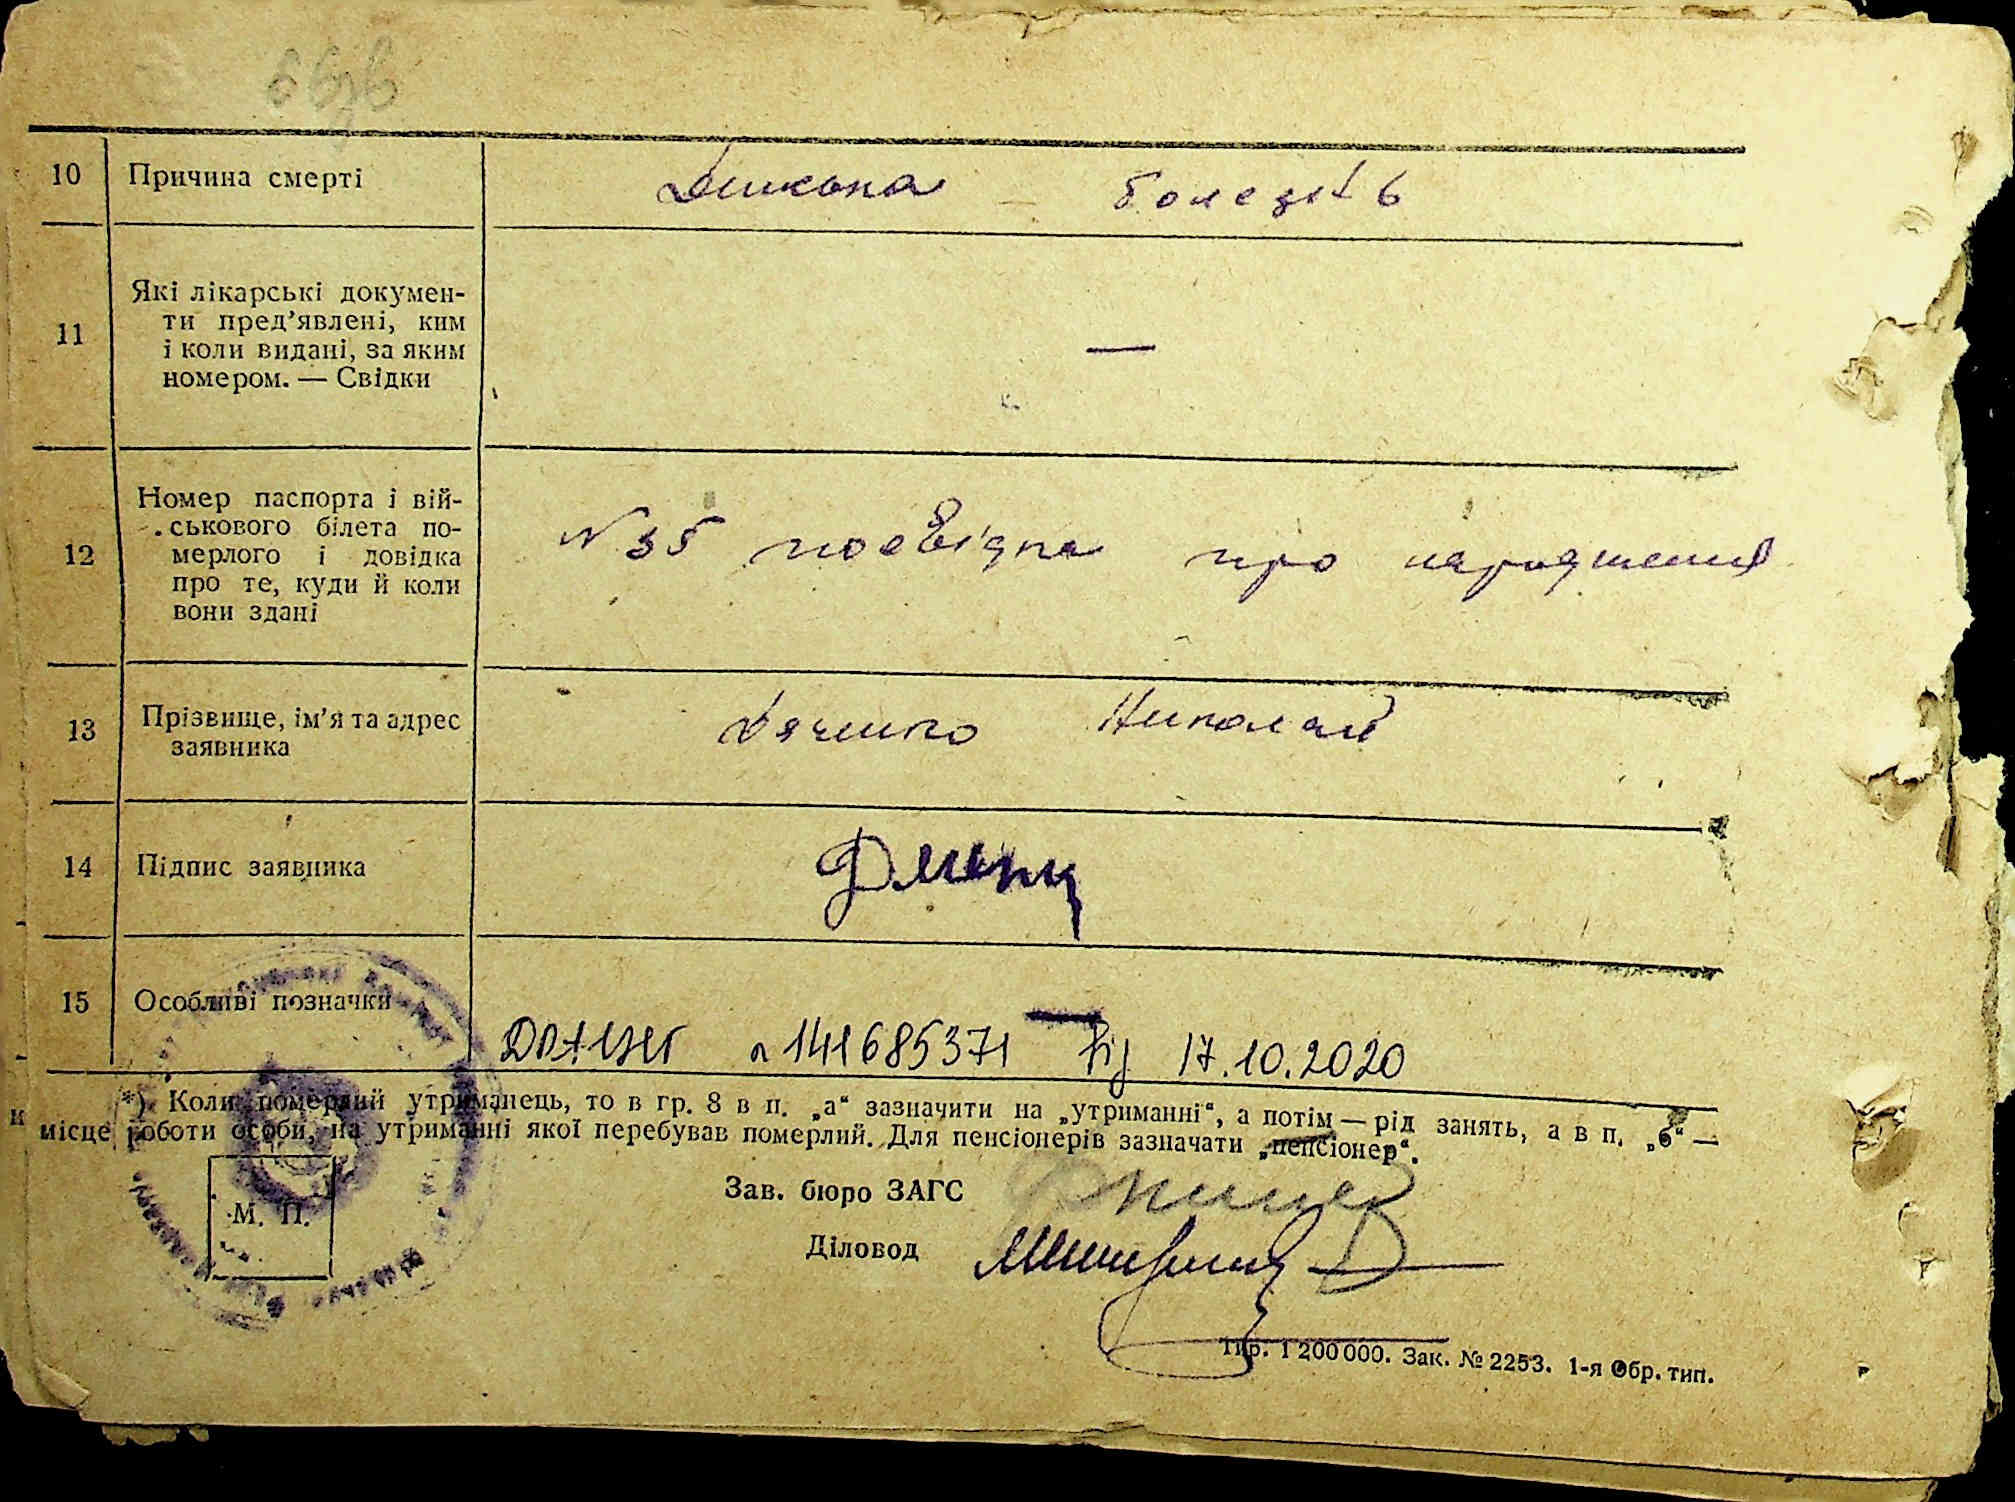 10 Причина смерті болезнь
11 Які лікарські докумен-
ти пред’явлені, ким
і коли видані, за яким
номером. — Свідки —
12 Номер паспорта і вій-
ськового білета по-
мерлого і довідка
про те, куди й коли
вони здані
N 35 посвідка про народження
13 Прізвище, ім’я та адрес
заявника
Дяченко Николай
14 Підпис заявника
15 Особливі позначки —
141685371 від 17.10.2020
*) Коли померлий утриманець, то в гр. 8 в п. „а“ зазначити на „утриманні“, а потім — рід занять, а в п. „б“ —
місце роботи особи, на утриманні якої перебував померлий. Для пенсіонерів зазначати „пенсіонер“.
Зав. бюро ЗАГС
М. П.
Діловод
Тир. 1 200 000. Зак. № 2253. 1-я Обр. тип.